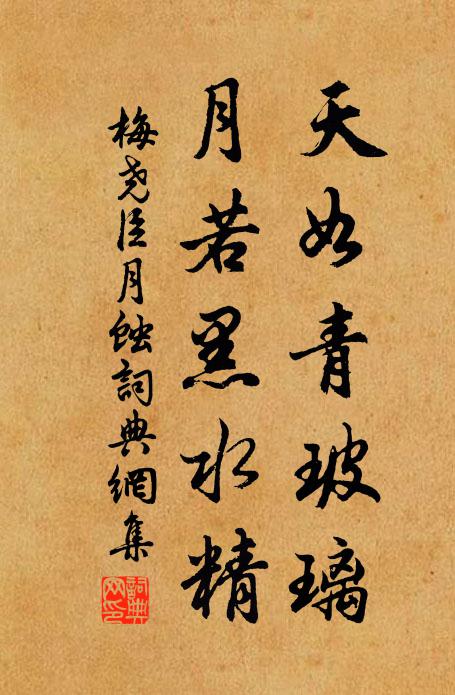 天如青玻璃
月若黑水精
梅尧臣月蚀詞典網集
詞典网印